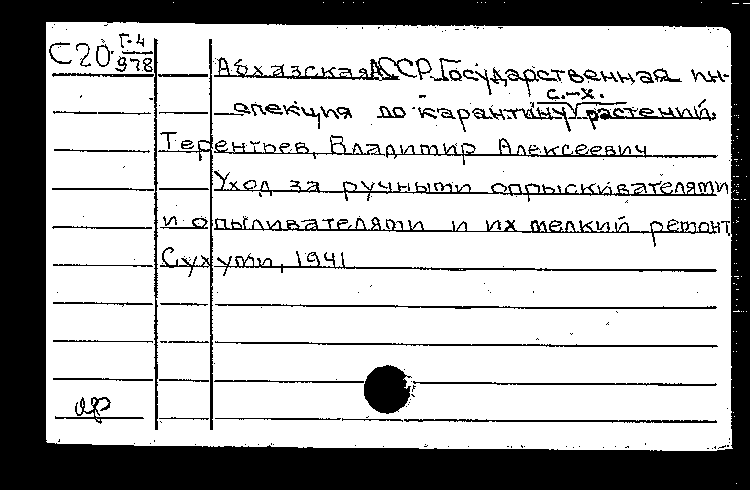 С20 Г-4
978
Абхазская АССР. Государственная ин-
спекция по карантину с.-х. растений.
Терентьев, Владимир Алексеевич
Уход за ручными опрыскивателями
и опыливателями и их мелкий ремонт
Сухуми, 1941